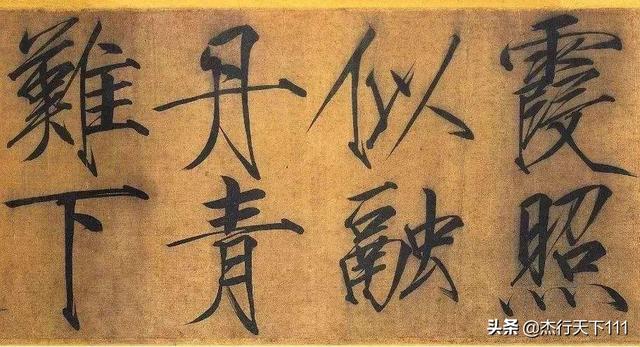 霞照
似融
丹青
難下
头条 @杰行天下111